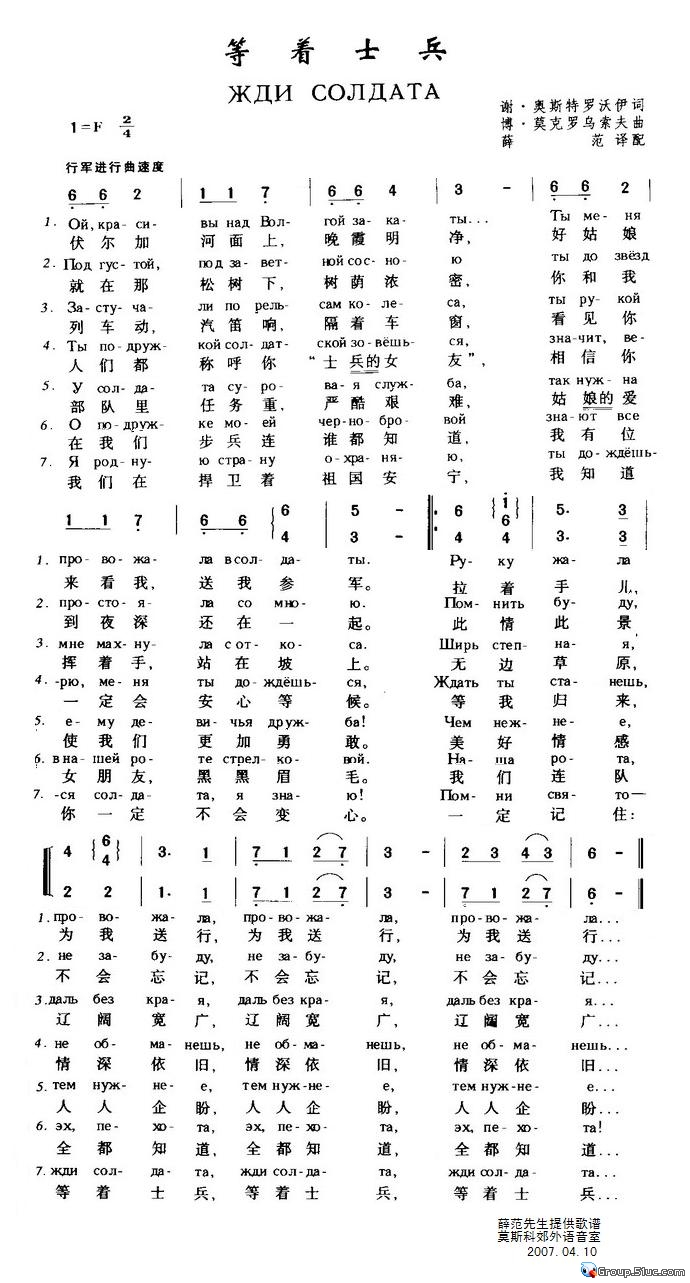 等着士兵
ЖДИ СОЛДАТА
谢·奥斯特罗沃伊词
1=F 2/4
博·莫克罗乌索夫曲
薛 范 译配
行军进行曲速度
6 6 2 1 1 7 6 6 4 3 - 6 6 2
1. Ой, кра-си- вы над Вол- гой за-ка- ты... Ты ме-ня
伏尔加 河面上, 晚霞明 净, 好姑娘
2. Под гус-той, под за-вет- ной сос-но- ю ты до звёзд
就在那 松树下, 树荫浓 密, 你和我
3. За-сту-ча- ли по рель- сам ко-ле- са, ты ру-кой
列车动, 汽笛响, 隔着车 窗, 看见你
4. Ты по-друж- кой сол-дат- ской зо-вёшь- ся, зна-чит, ве-
人们都 称呼你 “士兵的女 友”, 相信你
5. У сол-да- та су-ро- ва-я служ- ба, так нуж-на
部队里 任务重, 严酷艰 难, 姑娘的爱
6. О по-друж- ке мо-ей чер-но-бро- вой зна-ют все
在我们 步兵连 谁都知 道, 我有位
7. Я род-ну- ю стра-ну о-хра-ня- ю, ты до-ждёшь-
我们在 捍卫着 祖国安 宁, 我知道
1 1 7 6 6 6 5 - 6 1 6 5. 3
4 3 - 4 4 3. 3
1. про-во-жа- ла в сол-да- ты. Ру- ку жа- ла
来看我, 送我参 军。 拉着手儿,
2. про-сто-я- ла со мно- ю. Пом-нить бу- ду,
到夜深 还在一 起。 此情此景
3. мне мах-ну- ла с от-ко- са. Ширь степ-на- я,
挥着手, 站在坡 上。 无边草原,
4. -рю, ме-ня ты до-ждёшь- ся, Ждать ты ста-нешь,
一定会 安心等 候。 等我归来,
5. е-му де- ви-чья друж- ба! Чем неж-не- е,
使我们 更加勇 敢。 美好情感
6. в на-шей ро- те стрел-ко- вой. На- ша ро-та,
女朋友, 黑黑眉 毛。 我们连队
7. -ся сол-да- та, я зна- ю! Пом-ни свя-то—
你一定 不会变 心。 一定记住:
4 6 4 3. 1 7 1 2 7 3 - 2 3 4 3 6 -
2 2 1. 1 7 1 2 7 3 - 7 1 2 7 6 -
1. про-во- жа- ла, про-во-жа- ла, про-во-жа- ла...
为我送行, 为我送 行, 为我送 行...
2. не за- бу- ду, не за-бу- ду, не за-бу- ду...
不会忘记, 不会忘 记, 不会忘 记...
3. даль без кра- я, даль без кра- я, даль без кра- я...
辽阔宽广, 辽阔宽 广, 辽阔宽 广...
4. не об- ма- нешь, не об-ма- нешь, не об-ма- нешь...
情深依旧, 情深依 旧, 情深依 旧...
5. тем нуж- не- е, тем нуж-не- е, тем нуж-не- е...
人人企盼, 人人企 盼, 人人企 盼...
6. эх, пе- хо- та, эх, пе-хо- та, эх, пе-хо- та!
全都知道, 全都知 道, 全都知 道...
7. жди сол- да- та, жди сол-да- та, жди сол-да- та...
等着士兵, 等着士 兵, 等着士 兵...
薛范先生提供歌谱
莫斯科郊外语音室
2007.04.10
Group.51uc.com